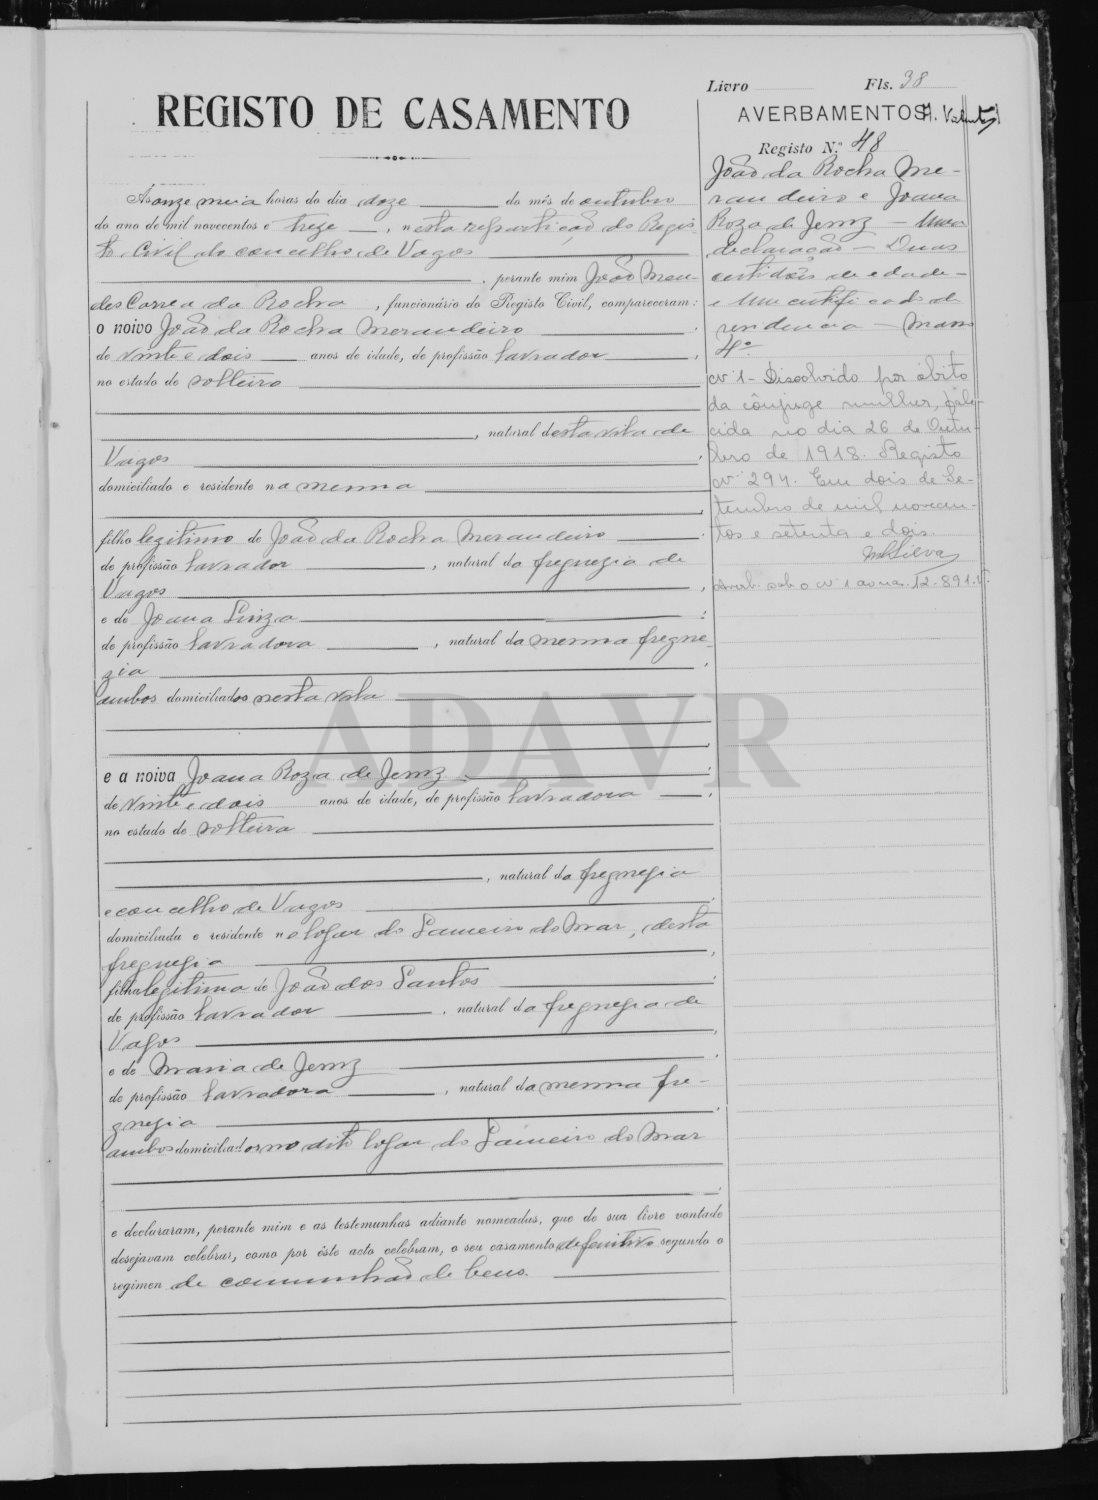 Livro Fls. 38
REGISTO DE CASAMENTO
AVERBAMENTOS
Registo N.º 48
Ás onze meia horas do dia doze do mês de outubro
do ano de mil novecentos e treze, nesta repartição do Regis-
to Civil do concelho de Vagos
, perante mim João Men-
des Correa da Rocha, funcionário do Registo Civil, compareceram:
o noivo João da Rocha Merandeiro
de vinte e dois anos de idade, de profissão lavrador,
no estado de solteiro
, natural desta vila de
Vagos,
domiciliado e residente na mesma
filho legitimo de João da Rocha Merandeiro
de profissão lavrador, natural da freguezia de
Vagos,
e de Joana Luiza
de profissão lavradora, natural da mesma fregue-
zia,
ambos domiciliados nesta vila
e a noiva Joana Roza de Jesuz
de vinte e dois anos de idade, de profissão lavradora,
no estado de solteira
, natural da freguezia
e concelho de Vagos,
domiciliada e residente no logar do Lameiro do Mar, desta
freguezia,
filha legitima de João dos Santos
de profissão lavrador, natural da freguezia de
Vagos,
e de Maria de Jesuz,
de profissão lavradora, natural da mesma fre-
guezia,
ambos domiciliados no dito logar do Lameiro do Mar
e declararam, perante mim e as testemunhas adiante nomeadas, que de sua livre vontade
desejavam celebrar, como por êste acto celebram, o seu casamento definitivo segundo o
regimen de comunhão de bens.
João da Rocha Me-
randeiro e Joana
Roza de Jesuz — Uma
declaração — Duas
certidões de edade —
e um certificado de
rendencia — Masso
4º
Nº 1 - Dissolvido por óbito
da cônjuge mulher, fale-
cida no dia 26 de Outu-
bro de 1918. Registo
nº 294. Em dois de Se-
tembro de mil novecen-
tos e setenta e dois.
MSilva
Averb. sob o nº 1
ADAVR